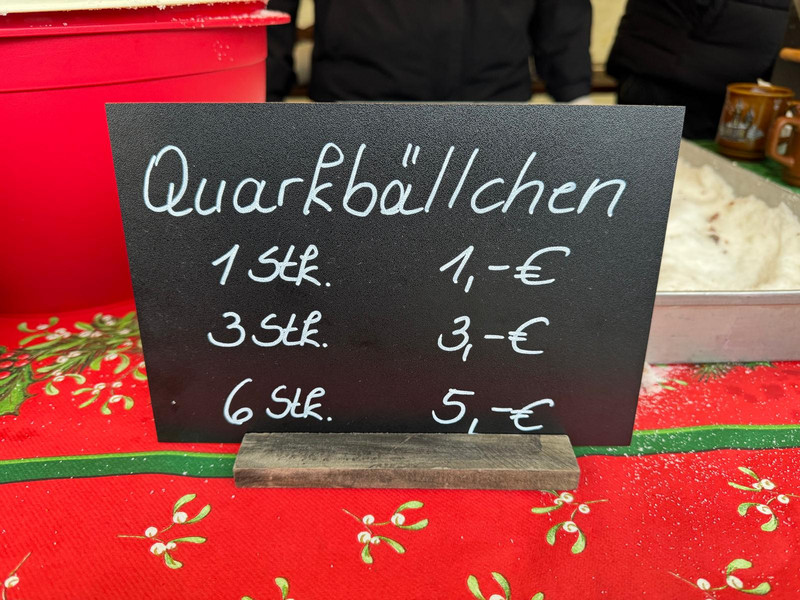 Quarkbällchen
1 Stk. 1,-€
3 Stk. 3,-€
6 Stk. 5,-€